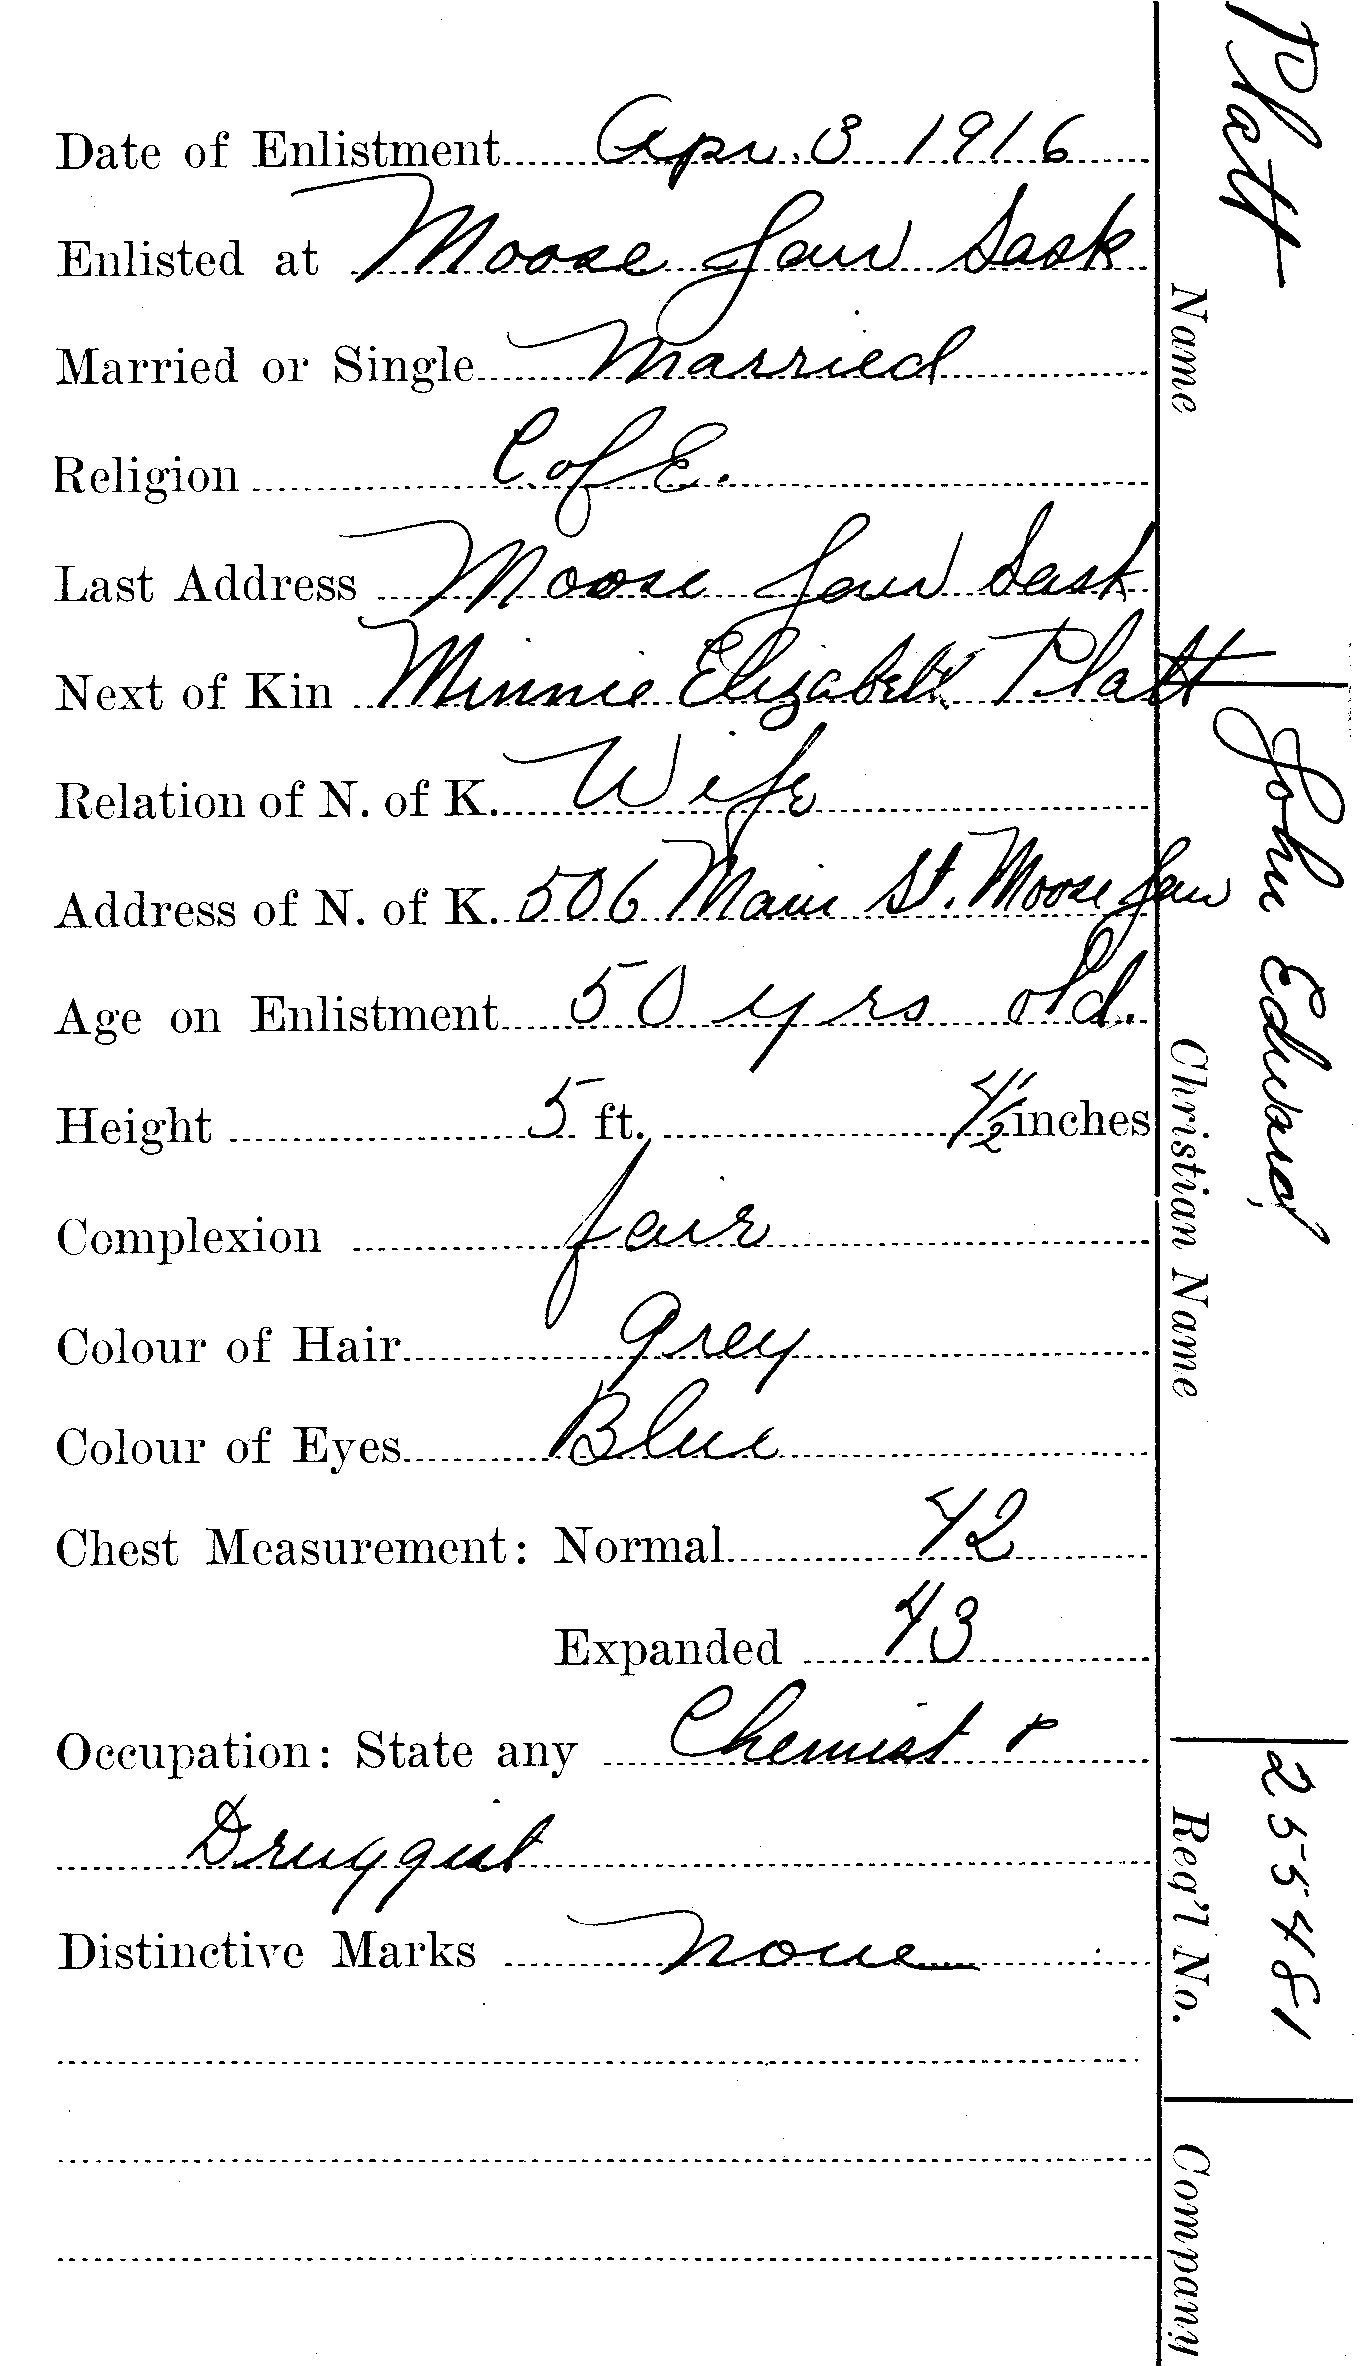 Date of Enlistment Apr. 3 1916
Enlisted at Moose Jaw Sask
Married or Single Married
Religion C. of E.
Last Address Moose Jaw Sask
Next of Kin Minnie Elizabeth Platt
Relation of N. of K. Wife
Address of N. of K. 506 Main St. Moose Jaw
Age on Enlistment 50 yrs old.
Height 5 ft. 4½ inches
Complexion fair
Colour of Hair grey
Colour of Eyes Blue
Chest Measurement: Normal 42
Expanded 43
Occupation: State any Chemist &
Druggist
Distinctive Marks none
Platt
Name
John Edward
Christian Name
255481
Reg'l No.
Company